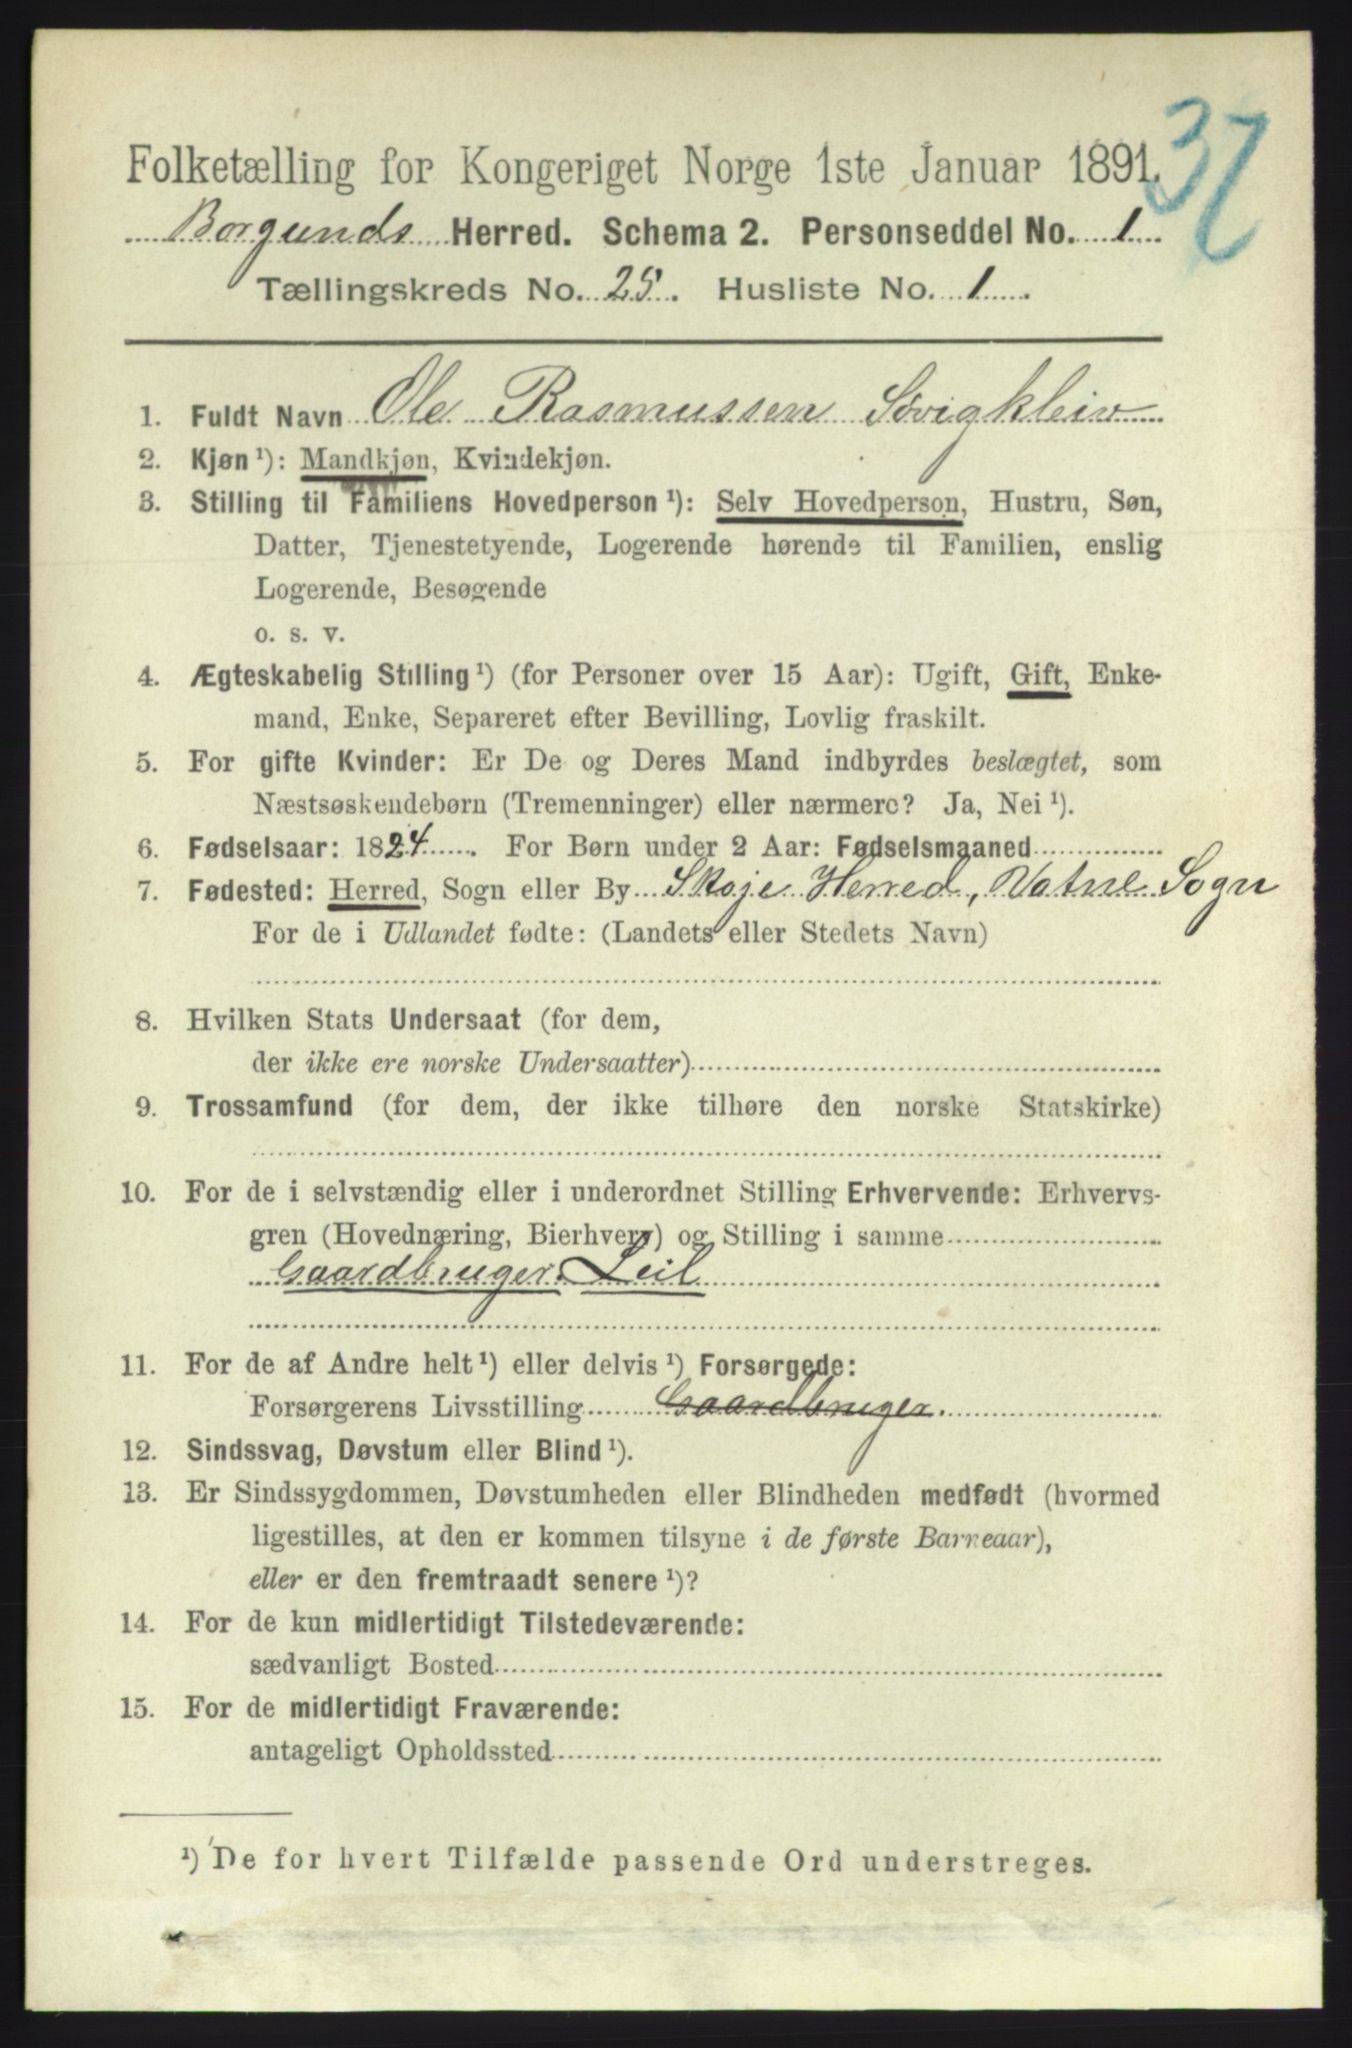 37
Folketælling for Kongeriget Norge 1ste Januar 1891.
Borgunds Herred. Schema 2. Personseddel No. 1
Tællingskreds No. 25. Husliste No. 1.
1. Fuldt Navn Ole Rasmussen Søvigkleiv
2. Kjøn ¹): Mandkjøn, Kvindekjøn.
3. Stilling til Familiens Hovedperson ¹): Selv Hovedperson, Hustru, Søn,
Datter, Tjenestetyende, Logerende hørende til Familien, enslig
Logerende, Besøgende
o. s. v.
4. Ægteskabelig Stilling ¹) (for Personer over 15 Aar): Ugift, Gift, Enke-
mand, Enke, Separeret efter Bevilling, Lovlig fraskilt.
5. For gifte Kvinder: Er De og Deres Mand indbyrdes beslægtet, som
Næstsøskendebørn (Tremenninger) eller nærmere? Ja, Nei ¹).
6. Fødselsaar: 1824. For Børn under 2 Aar: Fødselsmaaned
7. Fødested: Herred, Sogn eller By Skoje Herred, Vatne Sogn
For de i Udlandet fødte: (Landets eller Stedets Navn)
8. Hvilken Stats Undersaat (for dem,
der ikke ere norske Undersaatter)
9. Trossamfund (for dem, der ikke tilhøre den norske Statskirke)
10. For de i selvstændig eller i underordnet Stilling Erhvervende: Erhvervs-
gren (Hovednæring, Bierhverv) og Stilling i samme
Gaardbruger. Leil
11. For de af Andre helt ¹) eller delvis ¹) Forsørgede:
Forsørgerens Livsstilling Gaardbruger.
12. Sindssvag, Døvstum eller Blind ¹).
13. Er Sindssygdommen, Døvstumheden eller Blindheden medfødt (hvormed
ligestilles, at den er kommen tilsyne i de første Barneaar),
eller er den fremtraadt senere ¹)?
14. For de kun midlertidigt Tilstedeværende:
sædvanligt Bosted
15. For de midlertidigt Fraværende:
antageligt Opholdssted
¹) De for hvert Tilfælde passende Ord understreges.